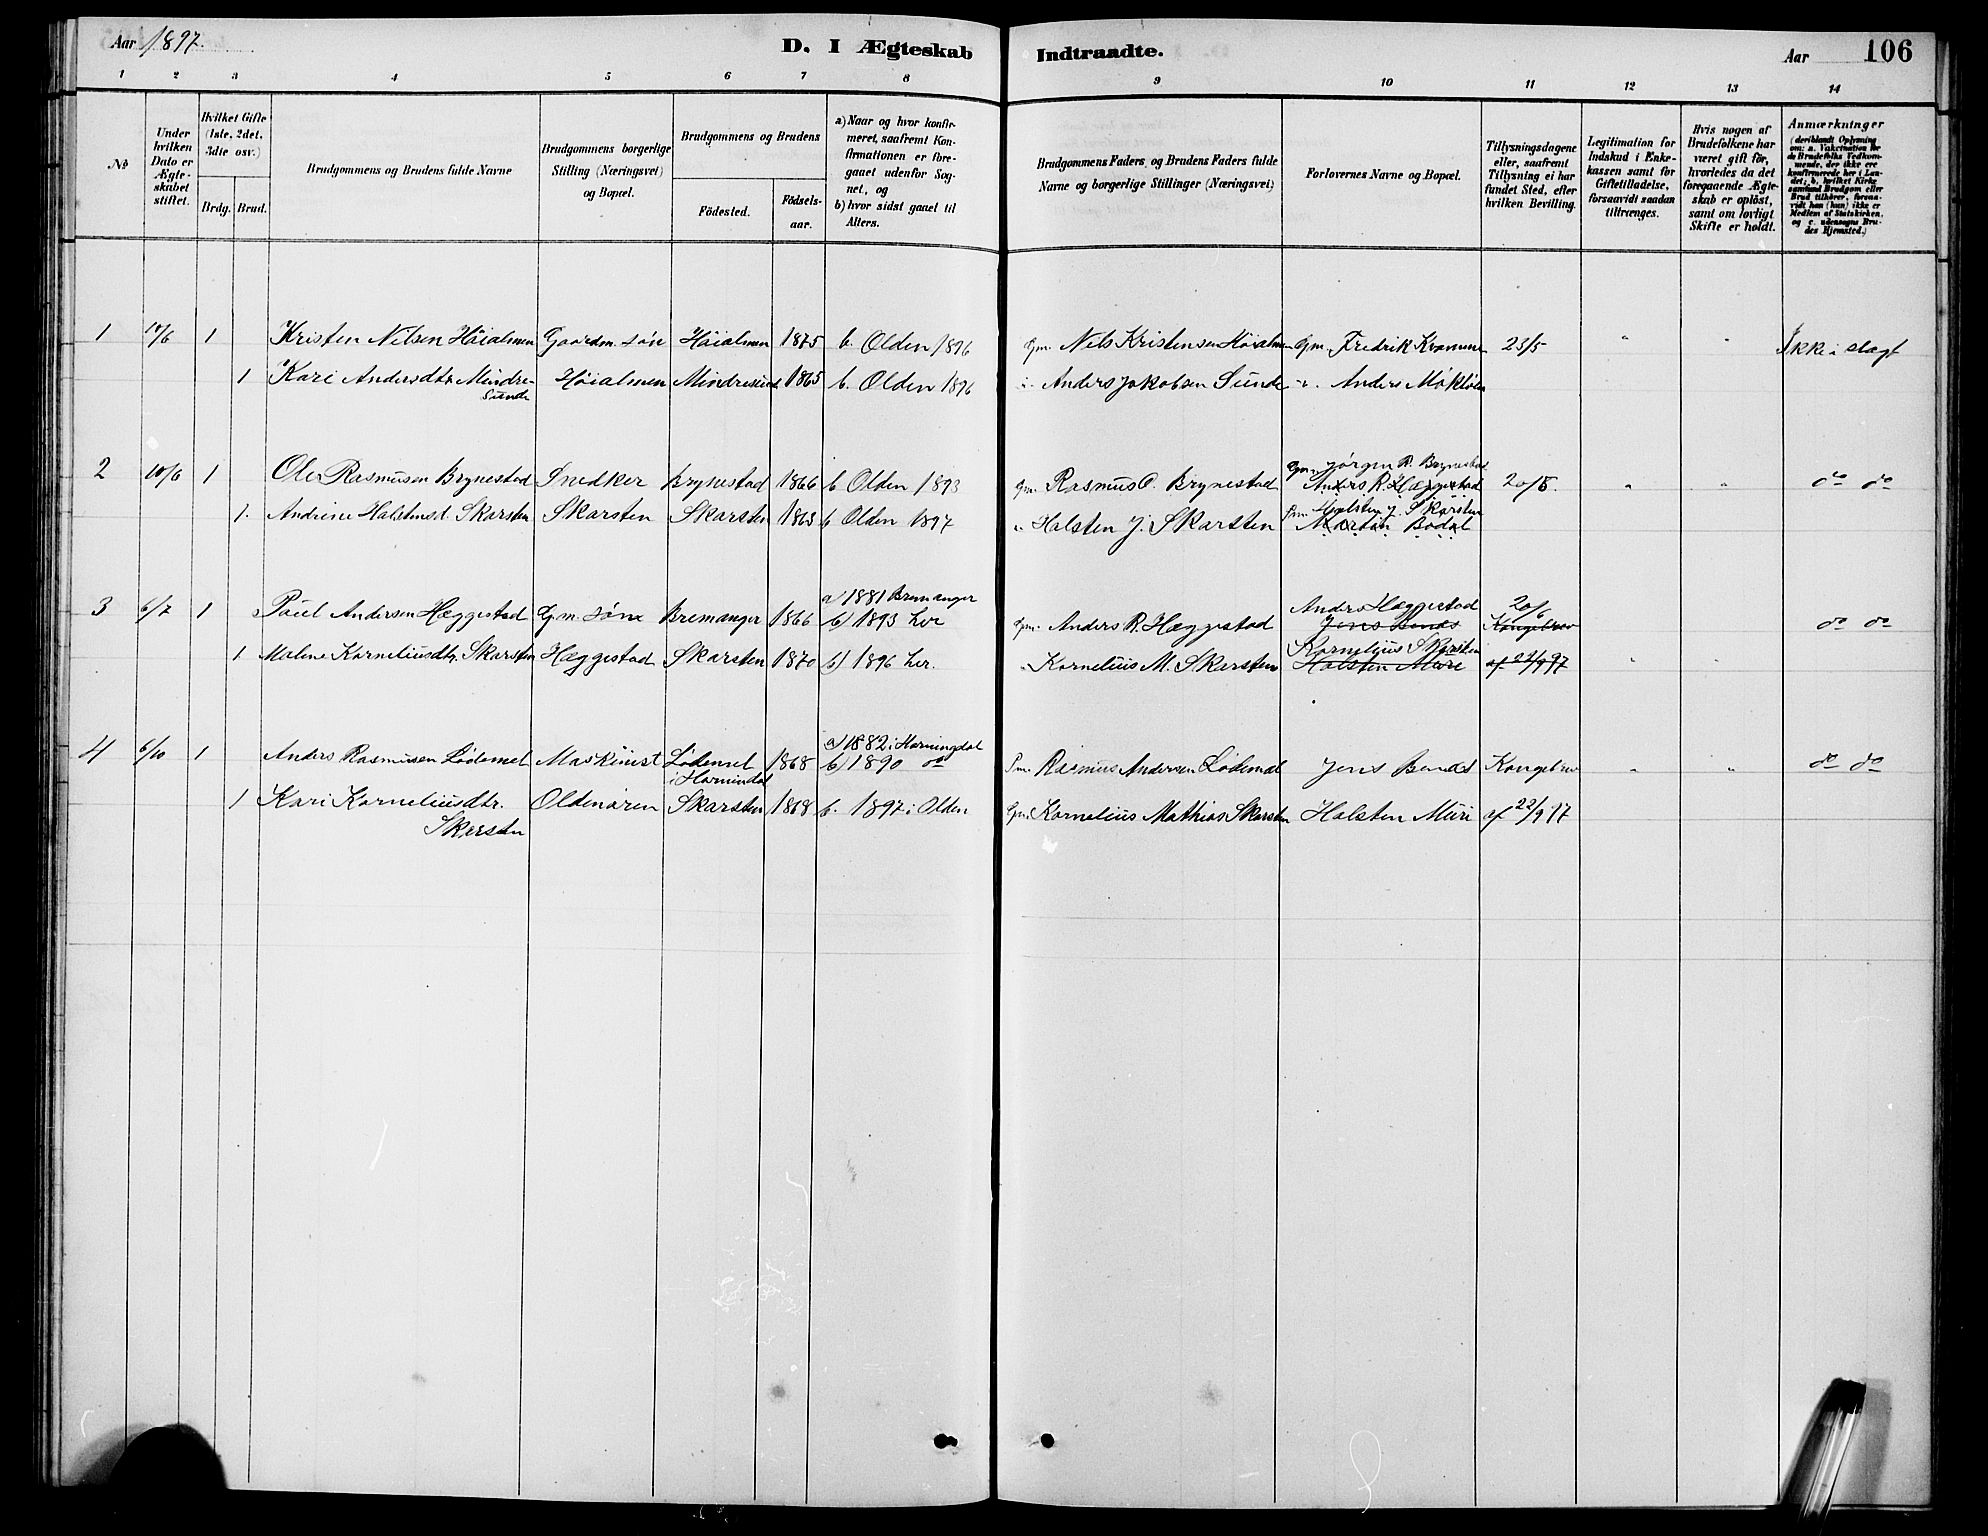 Aar 1897.
D. I Ægteskab Indtraadte.
Aar 106
1 2 3 4 5 6 7 8 9 10 11 12 13 14
№
Under hvilken Dato er Ægteskabet stiftet.
Hvilket Gifte (1ste, 2det, 3die osv.)
Brdg. Brud.
Brudgommens og Brudens fulde Navne
Brudgommens borgerlige Stilling (Næringsvei) og Bopæl.
Brudgommens og Brudens
Födested.
Födselsaar.
a) Naar og hvor konfirmeret, saafremt Konfirmationen er foregaaet udenfor Sognet, og
b) hvor sidst gaaet til Alters.
Brudgommens Faders, og Brudens Faders fulde Navne og borgerlige Stillinger (Næringsvei)
Forlovernes Navne og Bopæl.
Tillysningsdagene eller, saafremt Tillysning ei har fundet Sted, efter hvilken Bevilling.
Legitimation for Indskud i Enkekassen samt for Giftetilladelse, forsaavidt saadan tiltrænges.
Hvis nogen af Brudefolkene har været gift för, hvorledes da det foregaaende Ægteskab er oplöst, samt om lovligt Skifte er holdt.
Anmærkninger
(deriblandt Oplysning om: a. Vakcination for de Brudefolks Vedkommende, der ikke ere konfirmerede her i Landet; b. hvilket Kirkesamfund Brudgom eller Brud tilhörer, forsaavidt han (hun) ikke er Medlem af Statskirken, og c. udensogns Brudes Hjemsted.)
1 1 Kristen Nilsen Höialmen Gaardm. sön Höialmen 1875 b. Olden 1896 Gm. Nils Kristensen Höialmen Gm. Fredrik Kvamme 23/5 " " Ikke i slægt
1 Kari Andersdtr. Mindresunde Höialmen Mindresund 1865 b. Olden 1896 " Anders Jakobsen Sunde " Anders
2 10/6 1 Ole Rasmusen Brynestad Snedker Brynestad 1866 b Olden 1893 Gm. Rasmus O. Brynestad Gm. Jörgen R. Brynestad Anders R. Hæggestad 20/5. " " do do
1. Andrine Halstensd. Skarsten Skarsten Skarsten 1865 b Olden 1897 " Halsten J. Skarsten Gm. Halsten J. Skarsten Martin Bodal
3 6/7 1 Paul Andersen Hæggestad Gm. sön Bremanger 1866 a) 1881 Bremanger b) 1893 her Gm. Anders R. Hæggestad Anders Hæggestad Jens Bends 20/6 Kongebrev do do
1 Malene Korneliusdtr. Skarsten Hæggestad Skarsten 1870 b) 1896 her. " Kornelius M. Skarsten Kornelius Skarsten Halsten Muri af 22/9 97 " "
4 6/10 1 Anders Rasmusen Lödemel Maskinist Lödemel i Hornindal 1868 a) 1882 i Horningdal b) 1890 do Pm. Rasmus Andersen Lödemel Jens Bends Kongebrev " " do do
1 Kari Korneliusdtr. Skarsten Oldenören Skarsten 1868 b. 1897 i Olden Gm. Kornelius Mathias Skarsten Halsten Muri af 22/9 97